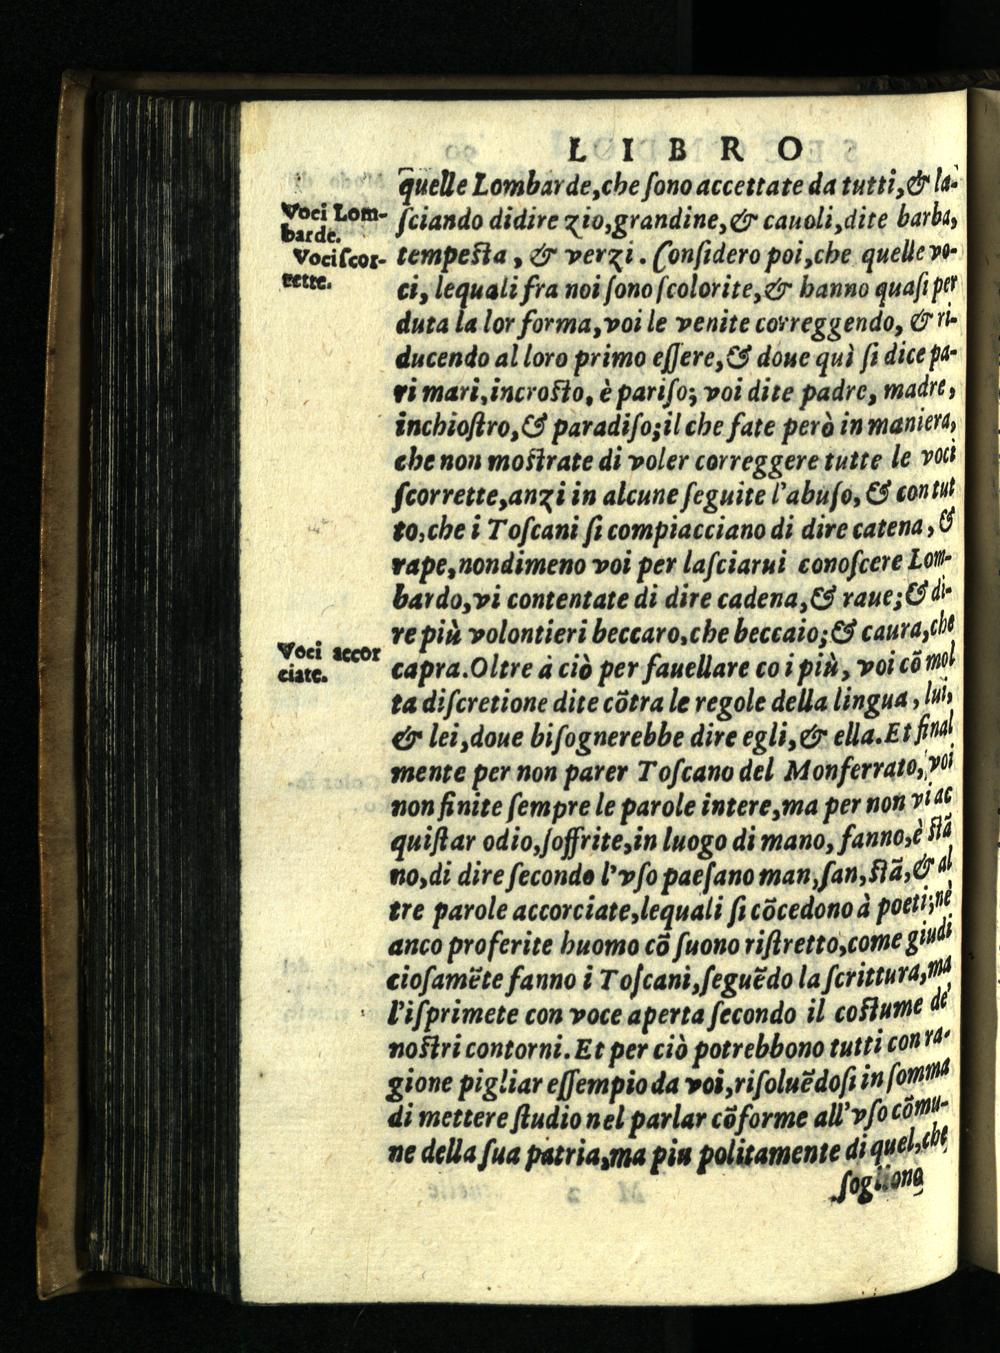 LIBRO
quelle Lombarde, che ſono accettate da tutti, & la-
Voci Lom-
barde.
ſciando didire zio, grandine, & cauoli, dite barba,
Voci ſcor-
rette.
tempeſta, & verzi. Conſidero poi, che quelle vo-
ci, lequali fra noi ſono ſcolorite, & hanno quaſi per
duta la lor forma, voi le venite correggendo, & ri-
ducendo al loro primo eſſere, & doue quì ſi dice pa-
ri mari, incroſto, è pariſo; voi dite padre, madre,
inchioſtro, & paradiſo; il che fate però in maniera,
che non moſtrate di voler correggere tutte le voci
ſcorrette, anzi in alcune ſeguite l'abuſo, & con tut
to, che i Toſcani ſi compiacciano di dire catena, &
rape, nondimeno voi per laſciarui conoſcere Lom-
bardo, vi contentate di dire cadena, & raue; & di-
re più volontieri beccaro, che beccaio; & caura, che
Voci accor
ciate.
capra. Oltre à ciò per fauellare co i più, voi cõ mol
ta diſcretione dite cõtra le regole della lingua, lui,
& lei, doue biſognerebbe dire egli, & ella. Et final
mente per non parer Toſcano del Monferrato, voi
non finite ſempre le parole intere, ma per non vi ac
quiſtar odio, ſoffrite, in luogo di mano, fanno, è ſtã
no, di dire ſecondo l'vſo paeſano man, ſan, ſtã, & al
tre parole accorciate, lequali ſi cõcedono à poeti; nè
anco proferite huomo cõ ſuono riſtretto, come giudi
cioſamẽte fanno i Toſcani, ſeguẽdo la ſcrittura, ma
l'iſprimete con voce aperta ſecondo il coſtume de'
noſtri contorni. Et per ciò potrebbono tutti con ra-
gione pigliar eſſempio da voi, riſoluẽdoſi in ſomma
di mettere ſtudio nel parlar cõforme all'vſo cõmu-
ne della ſua patria, ma più politamente di quel, che
ſogliono